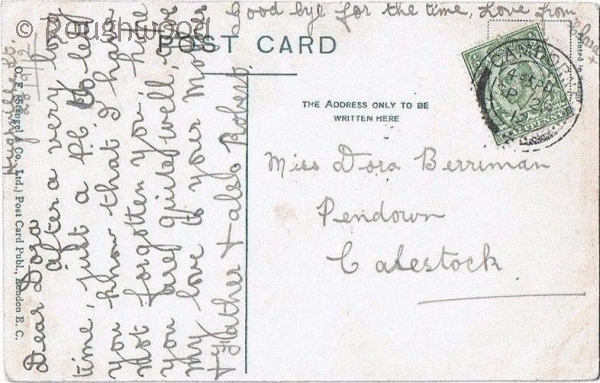 © Roughwood
POST CARD
THE ADDRESS ONLY TO BE
WRITTEN HERE
Miss Dora Berriman
Pendown
Calestock
Dear Dora
after a very long
time, just a P.C. to let
you know that I have
not forgotten you. hope
you are quite well,
my love to your Mother
+ Father + also Robert.
Good bye for the time, love from
(Stengel & Co., Ltd.) Post Card Publ., London E. C.
Printed in Saxony
CAMBORNE
12